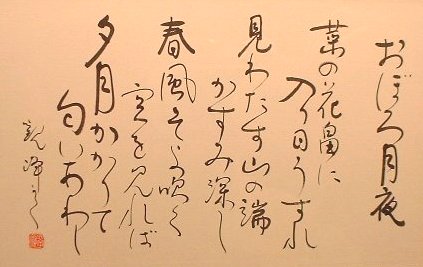 おぼろ月夜
菜の花畠に
入り日うすれ
見わたす山の端
かすみ深し
春風そよ吹く
空を見れば
夕月かかりて
匂いあわし
観峰